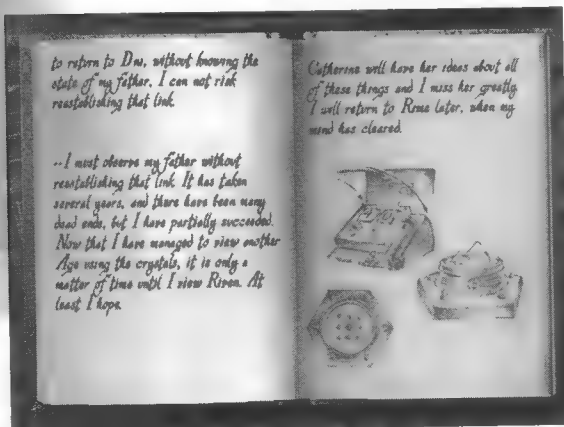 to return to Dni, without knowing the
state of my father, I can not risk
reestablishing that link.
--I must observe my father without
reestablishing that link. It has taken
several years, and there have been many
dead ends, but I have partially succeeded.
Now that I have managed to view another
Age using the crystals, it is only a
matter of time until I view Riven. At
least I hope.
Catherine will have her ideas about all
of these things and I miss her greatly.
I will return to Rime later, when my
mind has cleared.